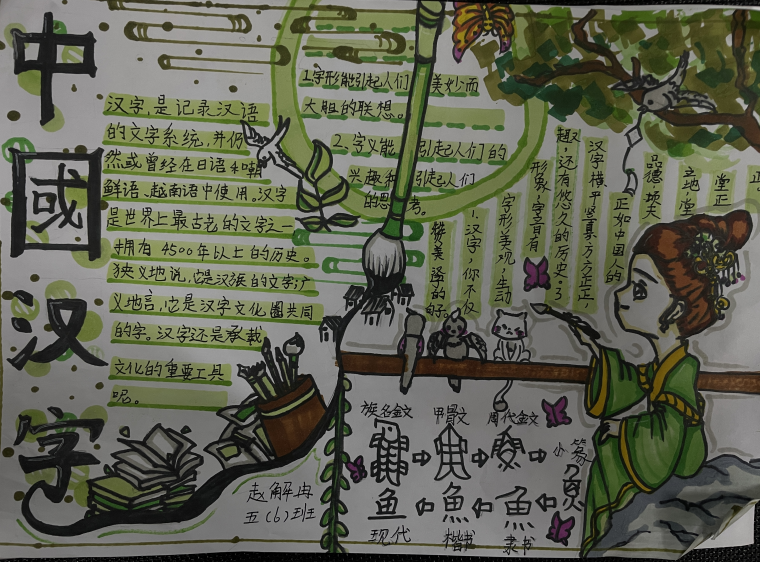 中國汉字
汉字,是记录汉语
的文字系统,并仍
然或曾经在日语和朝
鲜语、越南语中使用。汉字
是世界上最古老的文字之一
拥有4500年以上的历史。
狭义地说,它是汉族的文字;广
义地言,它是汉字文化圈共同
的字。汉字还是承载
文化的重要工具
呢。
1.字形能引起人们 美妙而
大胆的联想。
2、字义能 引起人们的
兴趣和引起人们
的思考。
赞美汉字的句
一、汉字,你不仅
字形美观,生动
形象,字音有
趣,还有悠久的历史。3
汉字横平竖直方方正正,
正如中国人的
品德,顶天
立地,堂
堂正
正
族名金文
甲骨文
周代金文
小篆
鱼
魚
魚
现代
楷书
隶书
赵解冉
五(6)班